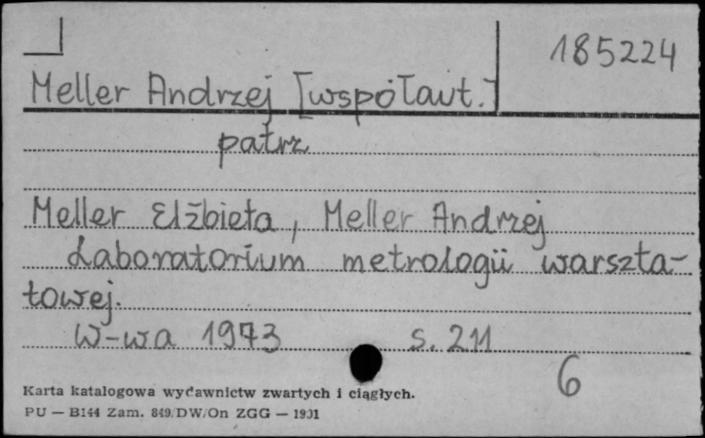 185224
Meller Andrzej [współaut.]
patrz
Meller Elżbieta, Meller Andrzej
Laboratorium metrologii warszta-
towej.
W-wa 1973 s. 211
6
Karta katalogowa wydawnictw zwartych i ciągłych.
PU — B144 Zam. 849/DW/On ZGG — 1931